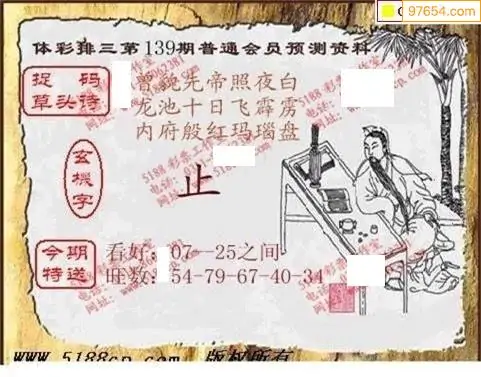 97654.com
体彩排三第139期普通会员预测资料
捉码
草头诗
曾貌先帝照夜白
龙池十日飞霹雳
内府殷红玛瑙盘
玄機字
止
今期
特送
看好：07--25之间
旺数：54-79-67-40-34
www.5188cp.com 版权所有